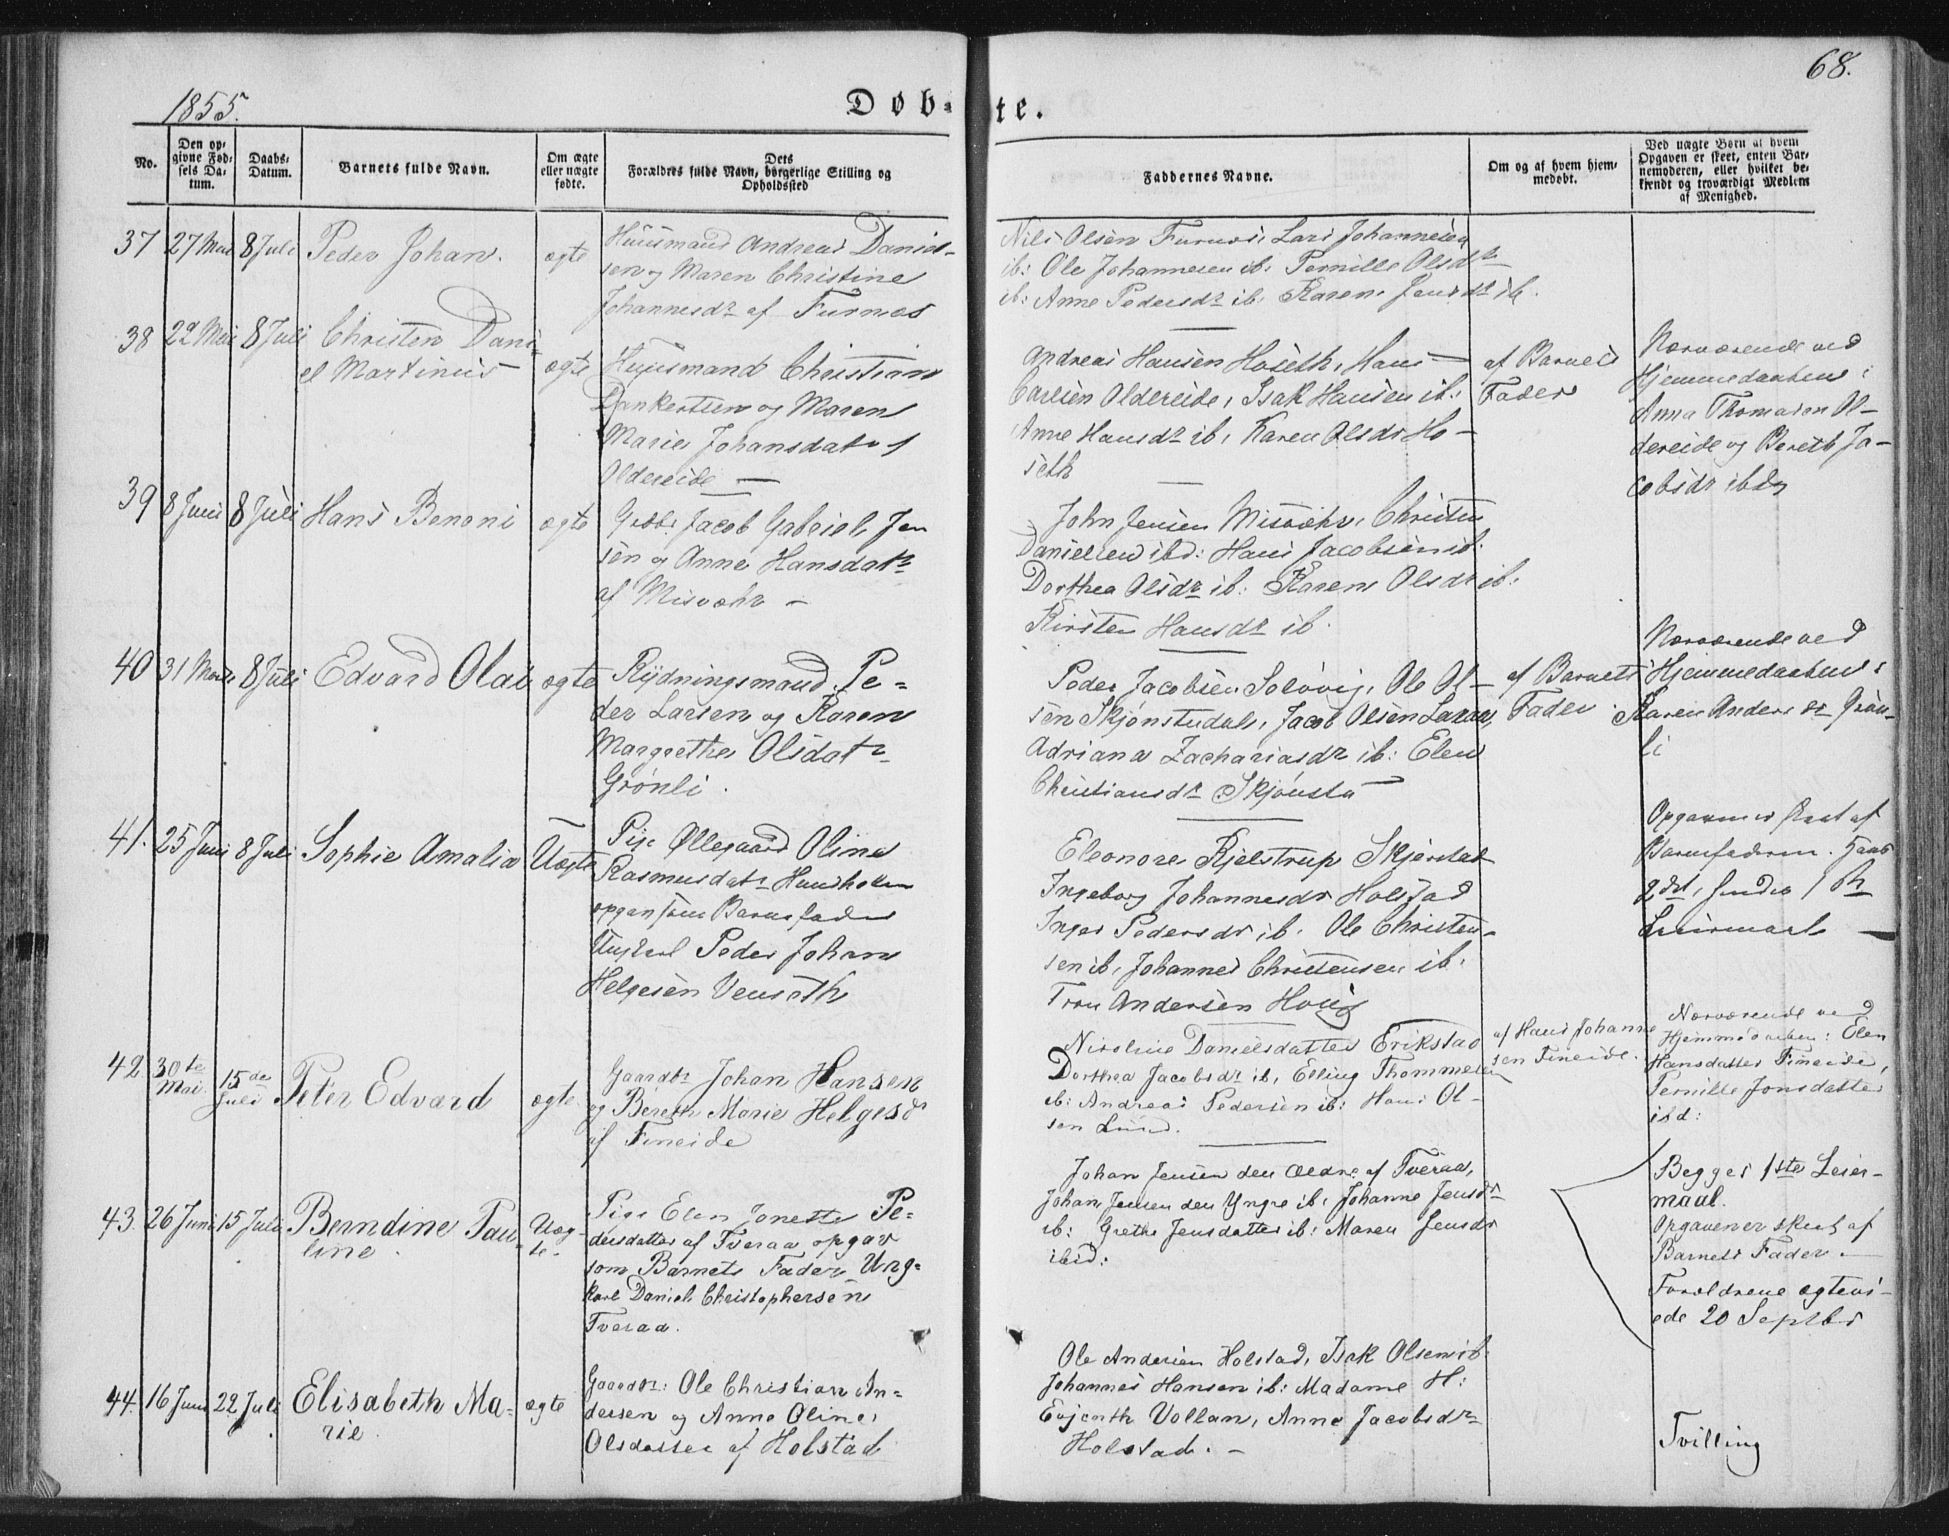 68.
1855.
Døb-te.
No.
Den op-
givne Fød-
sels Da-
tum.
Daabs-
Datum.
Barnets fulde Navn.
Om ægte
eller uægte
fødte.
Dets
Forældres fulde Navn, borgerlige Stilling og
Opholdssted
Faddernes Navne.
Om og af hvem hjem-
medøbt.
Ved uægte Børn af hvem
Opgaven er skeet, enten Bar-
nemoderen, eller hvilket be-
kjendt og troværdigt Medlem
af Menighed.
37 27 Mai 8 Juli Peder Johan. ægte
Huusmand Andreas Daniel-
sen og Maren Christine
Johannesdr af Furnes
Nils Olsen Furnes, Lars Johannesen
ib: Ole Johannesen ib: Pernille Olsdr
ib: Anne Pedersdr ib. Karen Jensdr ib.
38 22 Mai 8 Juli Christen Dani-
el Martinus ægte
Huusmand Christian
Dankertsen og Maren
Marie Johansdat af
Oldereide —
Andreas Hansen Hoseth, Hans
Carlsen Oldereide, Isak Hansen ib.
Anne Hansdr ib, Karen Olsdr Ho-
seth
af Barnets
Fader
Nærværende ved
Hjemmedaaben:
Anna Thomasen Ol-
dereide og Bereth Ja-
cobsdr ibd
39 8 Juni 8 Juli Hans Benoni ægte
Gdbr. Jacob Gabriel Jen
sen og Anne Hansdatr
af Misvæhr —
John Jensen Misvæhr, Christen
Danielsen ibd: Hans Jacobsen ib.
Dorthea Olsdr ib: Karen Olsdr ib:
Kirsten Hansdr ib.
40 31 8 Juli Edvard Olai ægte
Rydningsmand Pe-
der Larsen og Karen
Margrethe Olsdatr
Grønli.
Peder Jacobsen Soløvig, Ole Ol-
sen Skjønstudal, Jacob Olsen
Adriana Zachariasdr ib: Elen
Christiansdr Skjønsta
af Barnets
Fader.
Nærværende ved
Hjemmedaaben:
Karen Andersdr Grøn-
li
41. 25 Juni 8 Juli Sophie Amalia Uægte
Pige Øllegaard Oline
Rasmusdatr Hundholm
opgav som Barnefader
Ungkarl Peder Johan
Helgesen Venseth
Eleonore Kjelstrup Skjerstad
Ingeborg Johannesdr Holstad
Inger Pedersdr ib. Ole Christen-
sen ib, Johannes Christensen ib.
Andersen
Opgaven er skeet af
Barnefaderen. Hans
2det, hendes 1ste
Leiermaal —
42 30te
Mai 15de
Juli Peter Edvard ægte
Gaardbr Johan Hansen
og Bereth Marie Helgesdr
af Fineide
Nicoline Danielsdatter Erikstad
Dorthea Jacobsdr ib, Elling Thommesen
ib: Andreas Pedersen ib: Hans Ol-
sen Lund.
af Hans Johanne
sen Fineide.
Nærværende ved
Hjemmedaaben: Elen
Hansdatter Fineide,
Pernille Jonsdatter
ibd:
43. 26 Juni 15 Juli Berndine Pau-
line. Uæg-
te.
Pige Elen Jonette Pe-
dersdatter af Tveraa opgav
som Barnets Fader Ung-
karl Daniel Christophersen
Tveraa.
Johan Jensen den Ældre af Tveraa,
Johan Jensen den Yngre ib, Johanne Jensdr
ib: Grethe Jensdatter ib: Maren Jensdr
ibid:
Begges 1ste Leier-
maal.
Opgaven er skeet af
Barnets Fader. —
Forældrene ægtevi-
ede 20 Septbr
44. 16 Juni 22 Juli Elisabeth Ma-
rie. ægte
Gaardbr: Ole Christian An-
dersen og Anne Oline
Olsdatter af Holstad
Ole Andersen Holstad, Isak Olsen ib:
Johannes Hansen ib: Madame H:
Evjenth Vollan, Anne Jacobsdr
Holstad. —
Tvilling